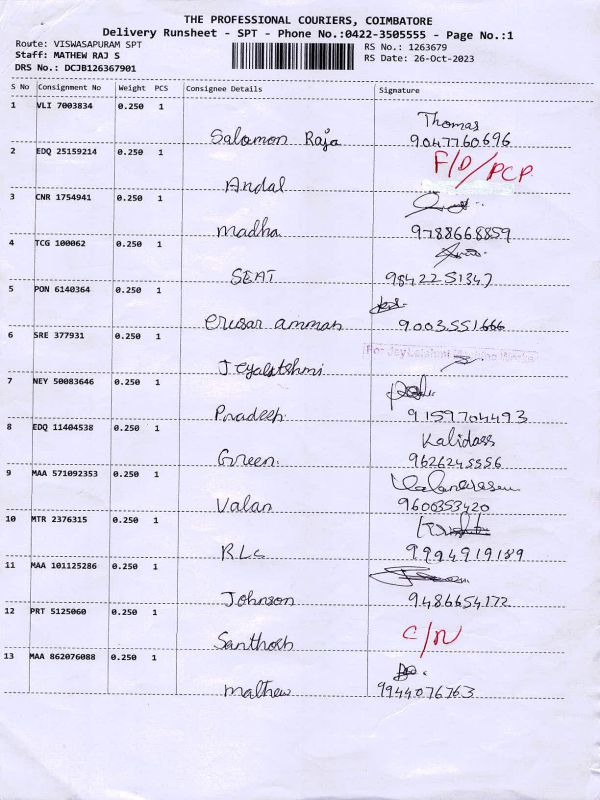 THE PROFESSIONAL COURIERS, COIMBATORE
Delivery Runsheet - SPT - Phone No.:0422-3505555 - Page No.:1
Route: VISWASAPURAM SPT
RS No.: 1263679
Staff: MATHEW RAJ S
RS Date: 26-Oct-2023
DRS No.: DCJB126367901
S No Consignment No Weight PCS Consignee Details Signature
1 VLI 7003834 0.250 1
Thomas
Salomon Raja 9047760696
2 EDQ 25159214 0.250 1
F/D/PCP
Andal
3 CNR 1754941 0.250 1
Madha 9788668859
4 TCG 100062 0.250 1
SEAT 9842251347
5 PON 6140364 0.250 1
erusar ammah 9003551666
6 SRE 377931 0.250 1
For JeyLakshmi
Jeyalakshmi
7 NEY 50083646 0.250 1
Pradeep 9159704493
8 EDQ 11404538 0.250 1
Kalidass
Green 9626245556
9 MAA 571092353 0.250 1
Valan 9600353420
10 MTR 2376315 0.250 1
R.L.C 9994919189
11 MAA 101125286 0.250 1
Johnson 9486654172
12 PRT 5125060 0.250 1
C/N
Santhosh
13 MAA 862076088 0.250 1
Mathew 9944076763